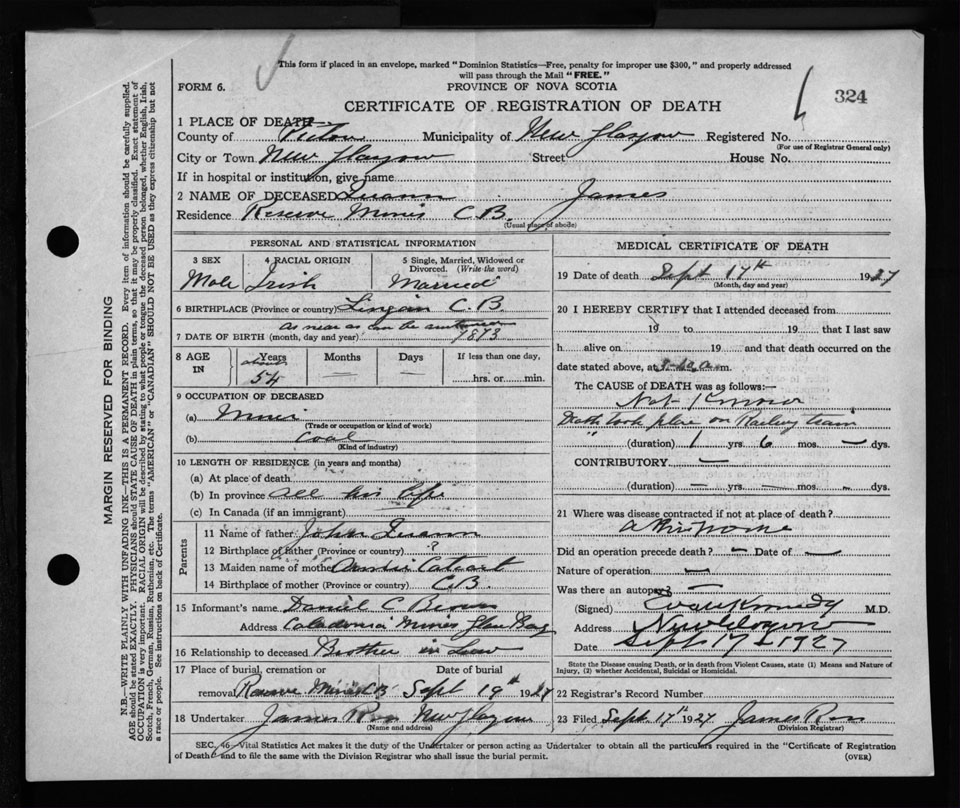 This form if placed in an envelope, marked "Dominion Statistics—Free, penalty for improper use $300," and properly addressed
will pass through the Mail "FREE."
FORM 6.
PROVINCE OF NOVA SCOTIA
324
CERTIFICATE OF REGISTRATION OF DEATH
1 PLACE OF DEATH—
County of Pictou Municipality of New Glasgow Registered No.
(For use of Registrar General only)
City or Town New Glasgow Street House No.
If in hospital or institution, give name
2 NAME OF DECEASED James
Residence Reserve Mines C.B.
(Usual place of abode)
PERSONAL AND STATISTICAL INFORMATION
3 SEX 4 RACIAL ORIGIN 5 Single, Married, Widowed or Divorced. (Write the word)
Male Irish Married
6 BIRTHPLACE (Province or country) Lingan C.B.
as near as can be
7 DATE OF BIRTH (month, day and year) 1873
8 AGE IN Years Months Days If less than one day,
about
54 hrs. or min.
9 OCCUPATION OF DECEASED
(a) Miner
(Trade or occupation or kind of work)
(b) Coal
(Kind of industry)
10 LENGTH OF RESIDENCE (in years and months)
(a) At place of death
(b) In province All his life
(c) In Canada (if an immigrant)
Parents
11 Name of father John
12 Birthplace of father (Province or country) ?
13 Maiden name of mother Annie
14 Birthplace of mother (Province or country) C.B
15 Informant's name Daniel C
Address Caledonia Mines Glace Bay
16 Relationship to deceased Brother in Law
17 Place of burial, cremation or Date of burial
removal Reserve Mines C.B Sept 19th 1927
18 Undertaker James Ross New Glasgow
(Name and address)
MEDICAL CERTIFICATE OF DEATH
19 Date of death Sept 17th 1927
(Month, day and year)
20 I HEREBY CERTIFY that I attended deceased from
19 to 19 that I last saw
h alive on 19 and that death occurred on the
date stated above, at m.
The CAUSE of DEATH was as follows:—
Not Known
Death took place on Railway train
" (duration) 1 yrs. 6 mos. — dys.
CONTRIBUTORY —
(duration) — yrs. — mos. — dys.
21 Where was disease contracted if not at place of death?
At his home
Did an operation precede death? — Date of —
Nature of operation —
Was there an autopsy? —
(Signed) Kennedy M.D.
Address New Glasgow
Date Sept 19 1927
State the Disease causing Death, or in death from Violent Causes, state (1) Means and Nature of
Injury, (2) whether Accidental, Suicidal or Homicidal.
22 Registrar's Record Number
23 Filed Sept 17th 1927 James Ross
(Division Registrar)
SEC. 46—Vital Statistics Act makes it the duty of the Undertaker or person acting as Undertaker to obtain all the particulars required in the "Certificate of Registration
of Death" and to file the same with the Division Registrar who shall issue the burial permit.
(OVER)
MARGIN RESERVED FOR BINDING
N.B.—WRITE PLAINLY WITH UNFADING INK—THIS IS A PERMANENT RECORD. Every item of information should be carefully supplied.
AGE should be stated EXACTLY. PHYSICIANS should STATE CAUSE OF DEATH in plain terms, so that it may be properly classified. Exact statement of
OCCUPATION is very important. RACIAL ORIGIN will be described by stating to what people or tongue the deceased person belonged, whether English, Irish,
Scotch, French, German, Russian, Ruthenian, etc. The terms "AMERICAN" or "CANADIAN" SHOULD NOT BE USED as they express citizenship but not
a race or people. See instructions on back of Certificate.